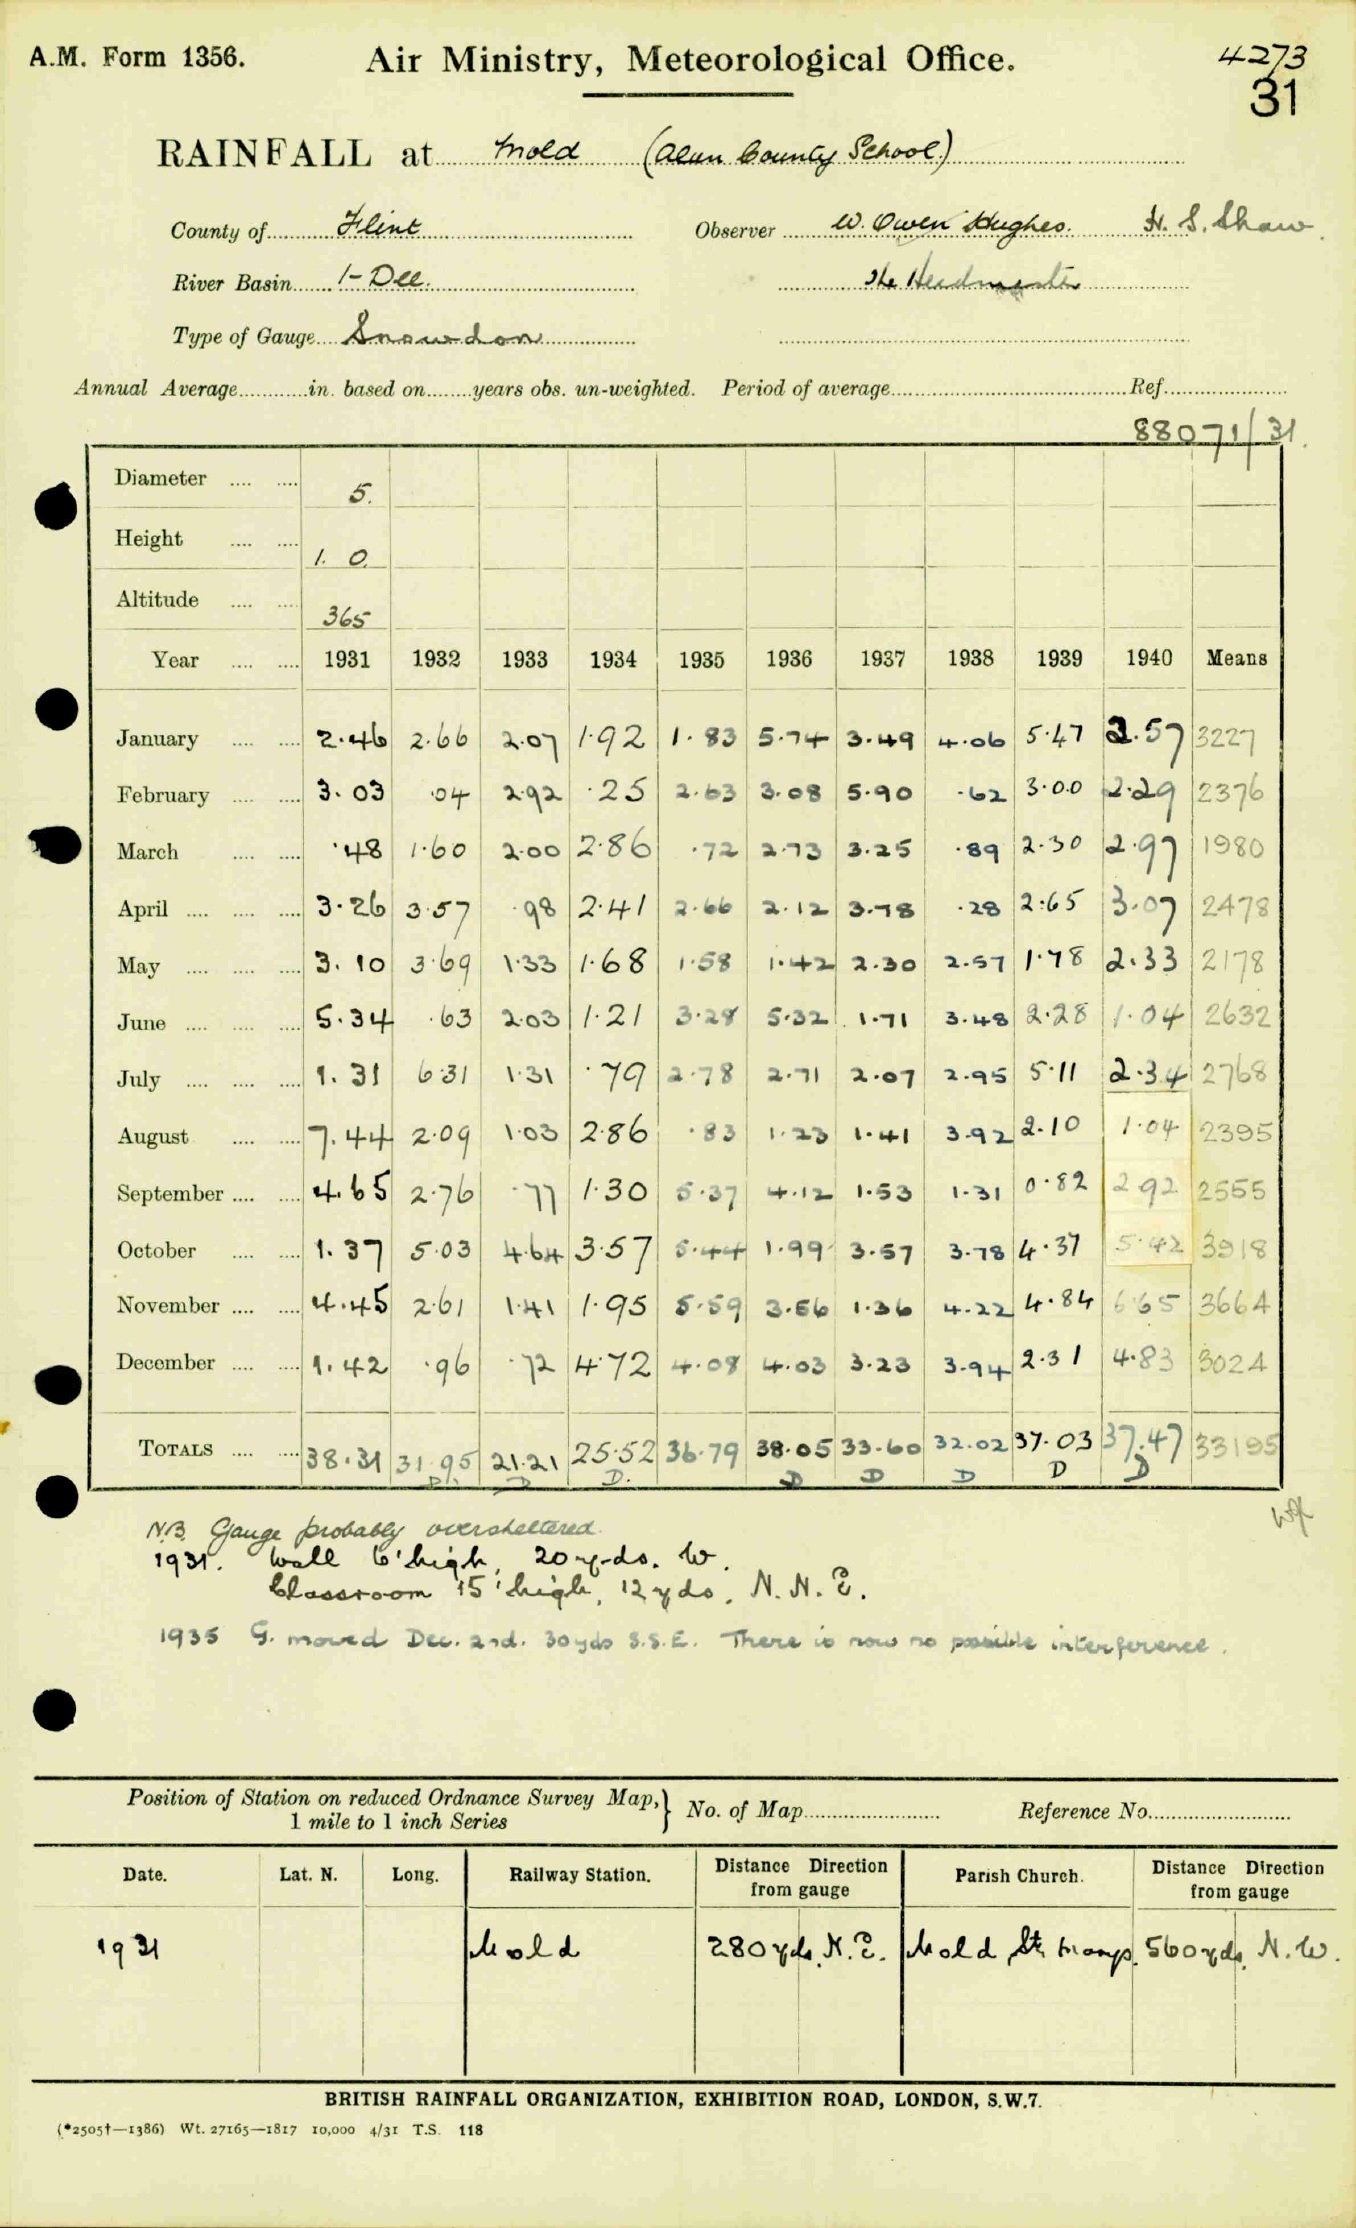 A.M. Form 1356. Air Ministry, Meteorological Office. 4273
31
RAINFALL at Mold (Alun County School)
County of Flint Observer W. Owen Hughes. H. S. Shaw.
River Basin 1-Dee. The Headmaster
Type of Gauge Snowdon
Annual Average in. based on years obs. un-weighted. Period of average Ref.
88071/31.
Diameter 5.
Height 1. 0.
Altitude 365
Year 1931 1932 1933 1934 1935 1936 1937 1938 1939 1940 Means
January 2.46 2.66 2.07 1.92 1.83 5.74 3.49 4.06 5.47 2.57 3227
February 3.03 .04 2.92 .25 2.63 3.08 5.90 .62 3.00 2.29 2376
March .48 1.60 2.00 2.86 .72 2.73 3.25 .89 2.30 2.97 1980
April 3.26 3.57 .98 2.41 2.66 2.12 3.78 .28 2.65 3.07 2478
May 3.10 3.69 1.33 1.68 1.58 1.42 2.30 2.57 1.78 2.33 2178
June 5.34 .63 2.03 1.21 3.28 5.32 1.71 3.48 2.28 1.04 2632
July 1.31 6.31 1.31 .79 2.78 2.71 2.07 2.95 5.11 2.34 2768
August 7.44 2.09 1.03 2.86 .83 1.23 1.41 3.92 2.10 1.04 2395
September 4.65 2.76 .77 1.30 5.37 4.12 1.53 1.31 0.82 2.92 2555
October 1.37 5.03 4.64 3.57 5.44 1.99 3.57 3.78 4.37 5.42 3918
November 4.45 2.61 1.41 1.95 5.59 3.56 1.36 4.22 4.84 6.65 3664
December 1.42 .96 .72 4.72 4.08 4.03 3.23 3.94 2.31 4.83 3024
TOTALS 38.31 31.95 21.21 25.52 36.79 38.05 33.60 32.02 37.03 37.47 33195
D. D D. D D D D D
N.B. Gauge probably oversheltered.
1931. Wall 6' high, 20 yds. W.
Classroom 15' high, 12 yds, N.N.E.
1935 G. moved Dec. 2nd. 30 yds S.S.E. There is now no possible interference.
Position of Station on reduced Ordnance Survey Map, No. of Map Reference No.
1 mile to 1 inch Series
Date. Lat. N. Long. Railway Station. Distance Direction from gauge Parish Church. Distance Direction from gauge
1931 Mold 280 yds. N.E. Mold, St. Marys. 560 yds. N.W.
BRITISH RAINFALL ORGANIZATION, EXHIBITION ROAD, LONDON, S.W.7.
(*2505†—1386) Wt. 27165—1817 10,000 4/31 T.S. 118